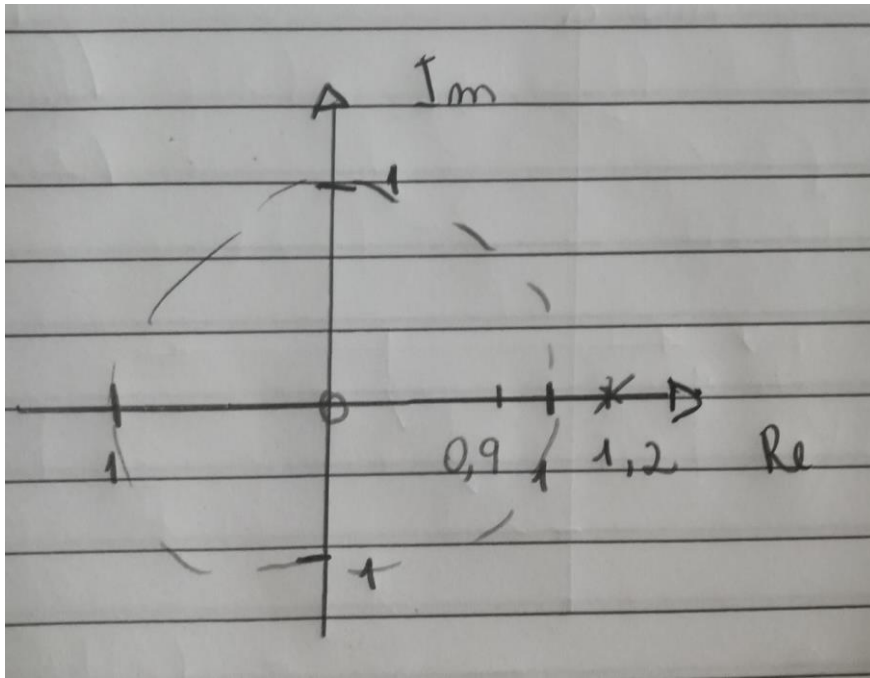 Im
1
1 0,9 1 1,2 Re
1